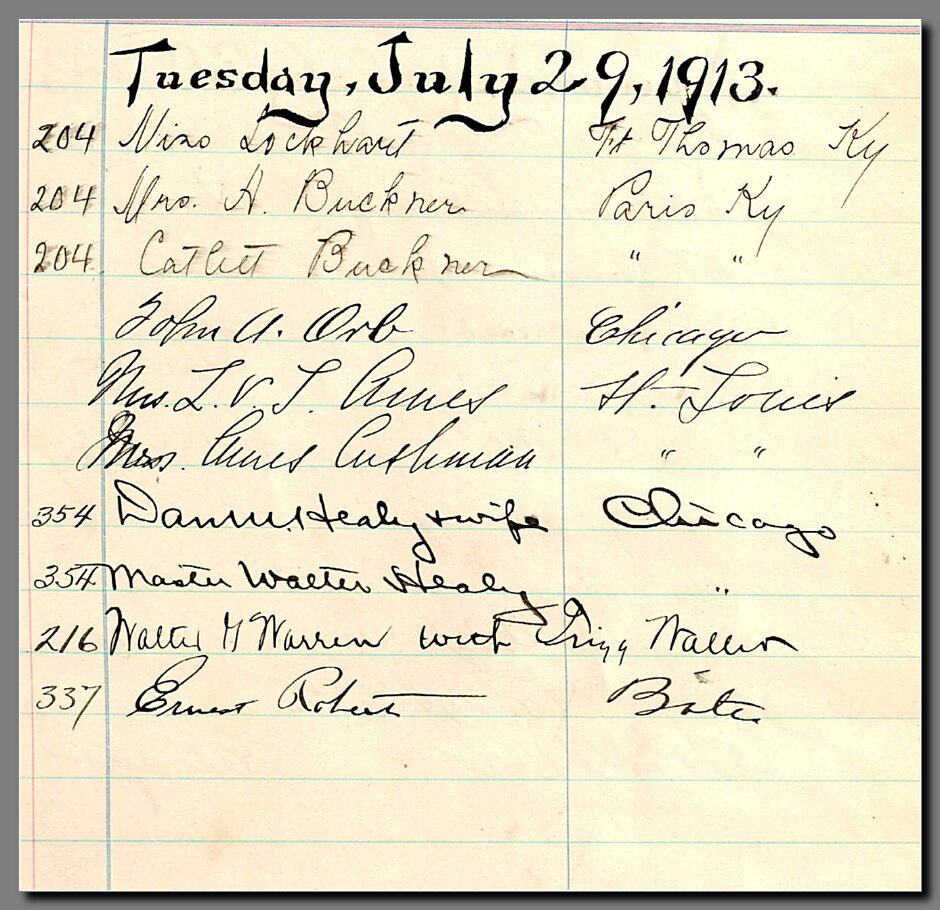 Tuesday, July 29, 1913.
204 Miss Lockhart Ft Thomas Ky
204 Mrs. H. Buckner Paris Ky
204 Catlett Buckner " "
John A. Orb Chicago
Mrs. L. V. T. Ames St. Louis
Mrs. Ames Cushman " "
354 Dan M. Healy & wife Chicago
354 Master Walter Healy "
216 Walter G Warren with
337 Ernest Roberts